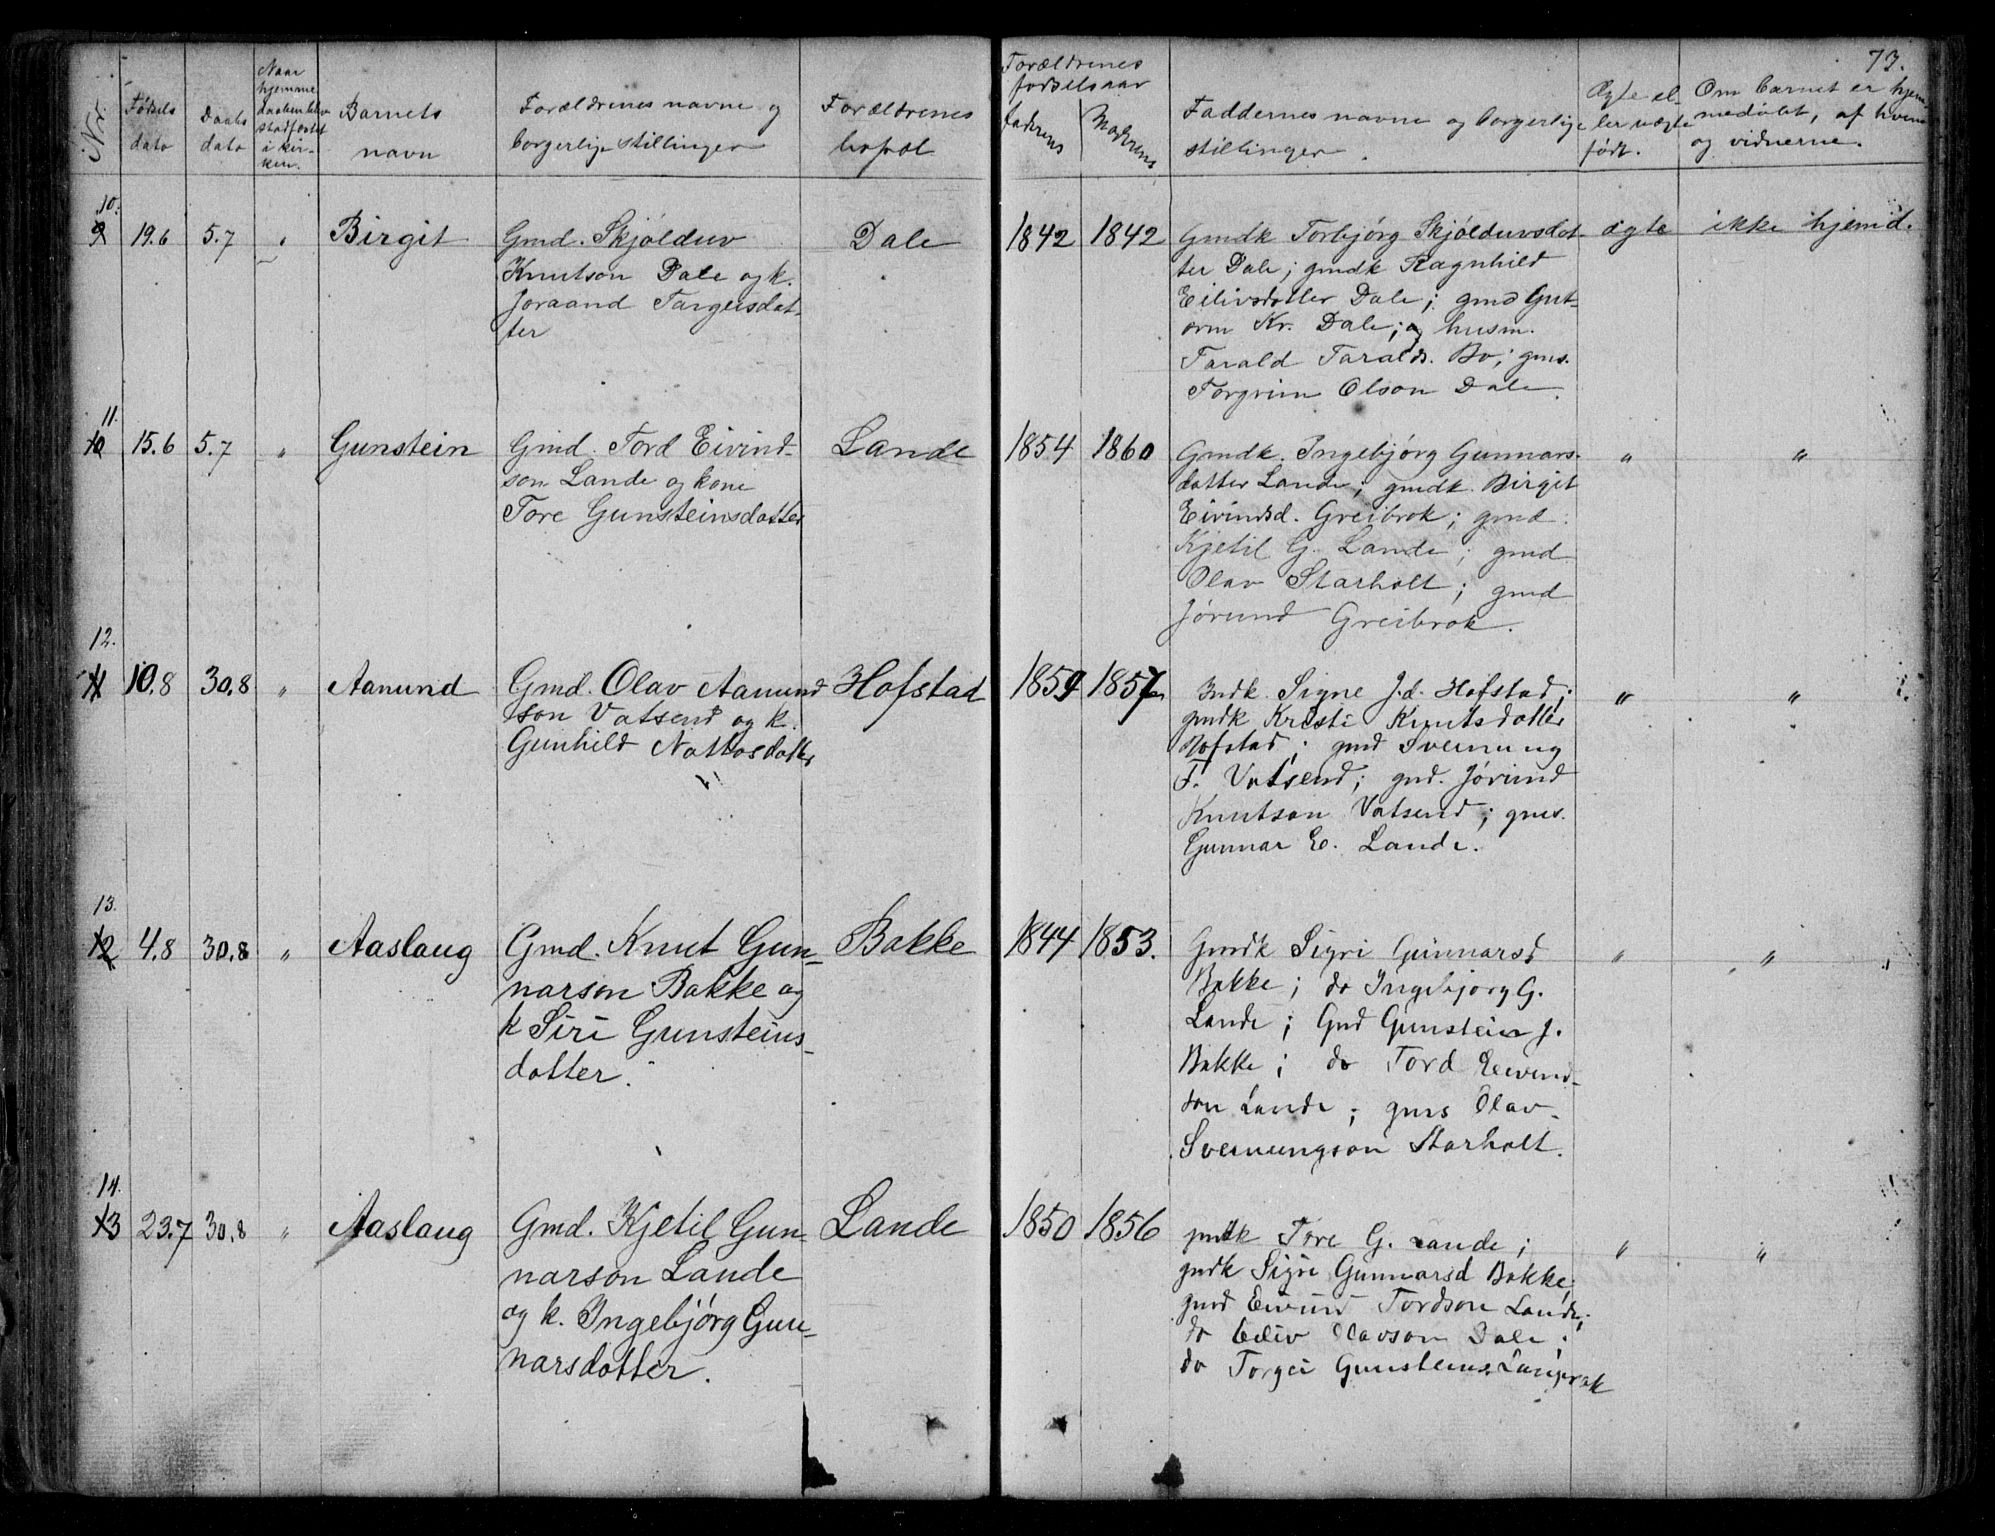 73.
Nr.
Fødsels
dato
Daabs
dato
Naar
hjemme
daaben blev
stadfæstet
i kir-
ken.
Barnets
navn
Forældrenes navne og
borgerlige stillinger
Forældrenes
bopæl
Forældrenes
fødselsaar
faderens
Moderens
Faddernes navne og borgerlige
stillinger.
Ægte el-
ler uægte
født.
Om barnet er hjem-
medøbt, af hvem
og vidnerne.
10.
9 19.6 5.7 " Birgit
Gmd. Skjölduv
Knutson Dale og k.
Joraand Targeisdat-
ter
Dale
1842 1842
Gmdk Torbjørg Skjölduvsdot-
ter Dale; gmdk Ragnhild
Eilivsdotter Dale; gmd Gut-
orm Kr. Dale; og husm.
Tarald Taralds. Bo; gms.
Torgrim Olson Dale.
ægte
ikke hjemd.
11.
10 15.6 5.7 " Gunstein
Gmd. Tord Eivind-
son Lande og kone
Tore Gunsteinsdotter
Lande
1854 1860
Gmdk. Ingebjørg Gunnars-
datter Lande; gmdk. Birgit
Eivindsd. Greibrok; gmd.
Kjetil G. Lande; gmd
Olav Starholt; gmd
Jørund Greibrok.
" "
12.
11 10.8 30.8 " Aamund
Gmd. Olav Aamund
son Vatsend og k.
Gunhild Nottosdotter
Hofstad
1859 1857
Gmdk. Signe J.d. Hofstad;
gmdk Kristi Knutsdotter
Hofstad; gmd Sveinung
T. Vatsend; gmd. Jørund
Knutson Vatsend; gms.
Gunnar E. Lande.
" "
13.
12 4.8 30.8 " Aaslaug
Gmd. Knut Gun-
narson Bakke og
k Siri Gunsteins-
dotter.
Bakke
1844 1853.
Gmdk Sigri Gunnarsd
Bakke; do Ingebjorg G.
Lande; Gmd Gunstein J.
Bakke; do Tord Eivind-
son Lande; gms Olav
Sveinungson Starholt.
" "
14.
13 23.7 30.8 " Aaslaug
Gmd. Kjetil Gun-
narson Lande
og k. Ingebjørg Gun-
narsdotter.
Lande
1850 1856
gmdk Tore G. Lande;
gmdk Sigri Gunnarsd Bakke;
gmd Eivind Tordson Lande;
do Eiliv Olavson Dale;
do Torgei Gunsteins. Langerak
" "